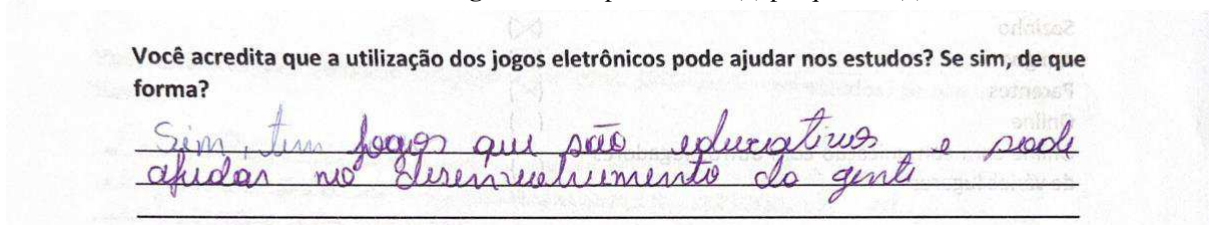 Você acredita que a utilização dos jogos eletrônicos pode ajudar nos estudos? Se sim, de que
forma?
Sim, tem jogos que são educativos e pode
ajudar no desenvolvimento da gente